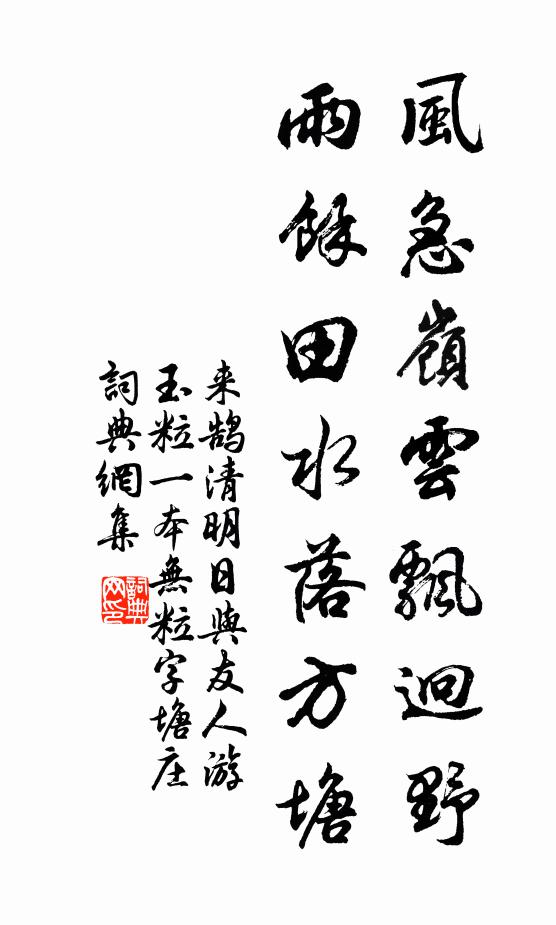 風急嶺雲飄迥野
雨餘田水落方塘
来鹄清明日與友人游
玉粒一本無粒字塘庄
詞典網集
詞典
网印